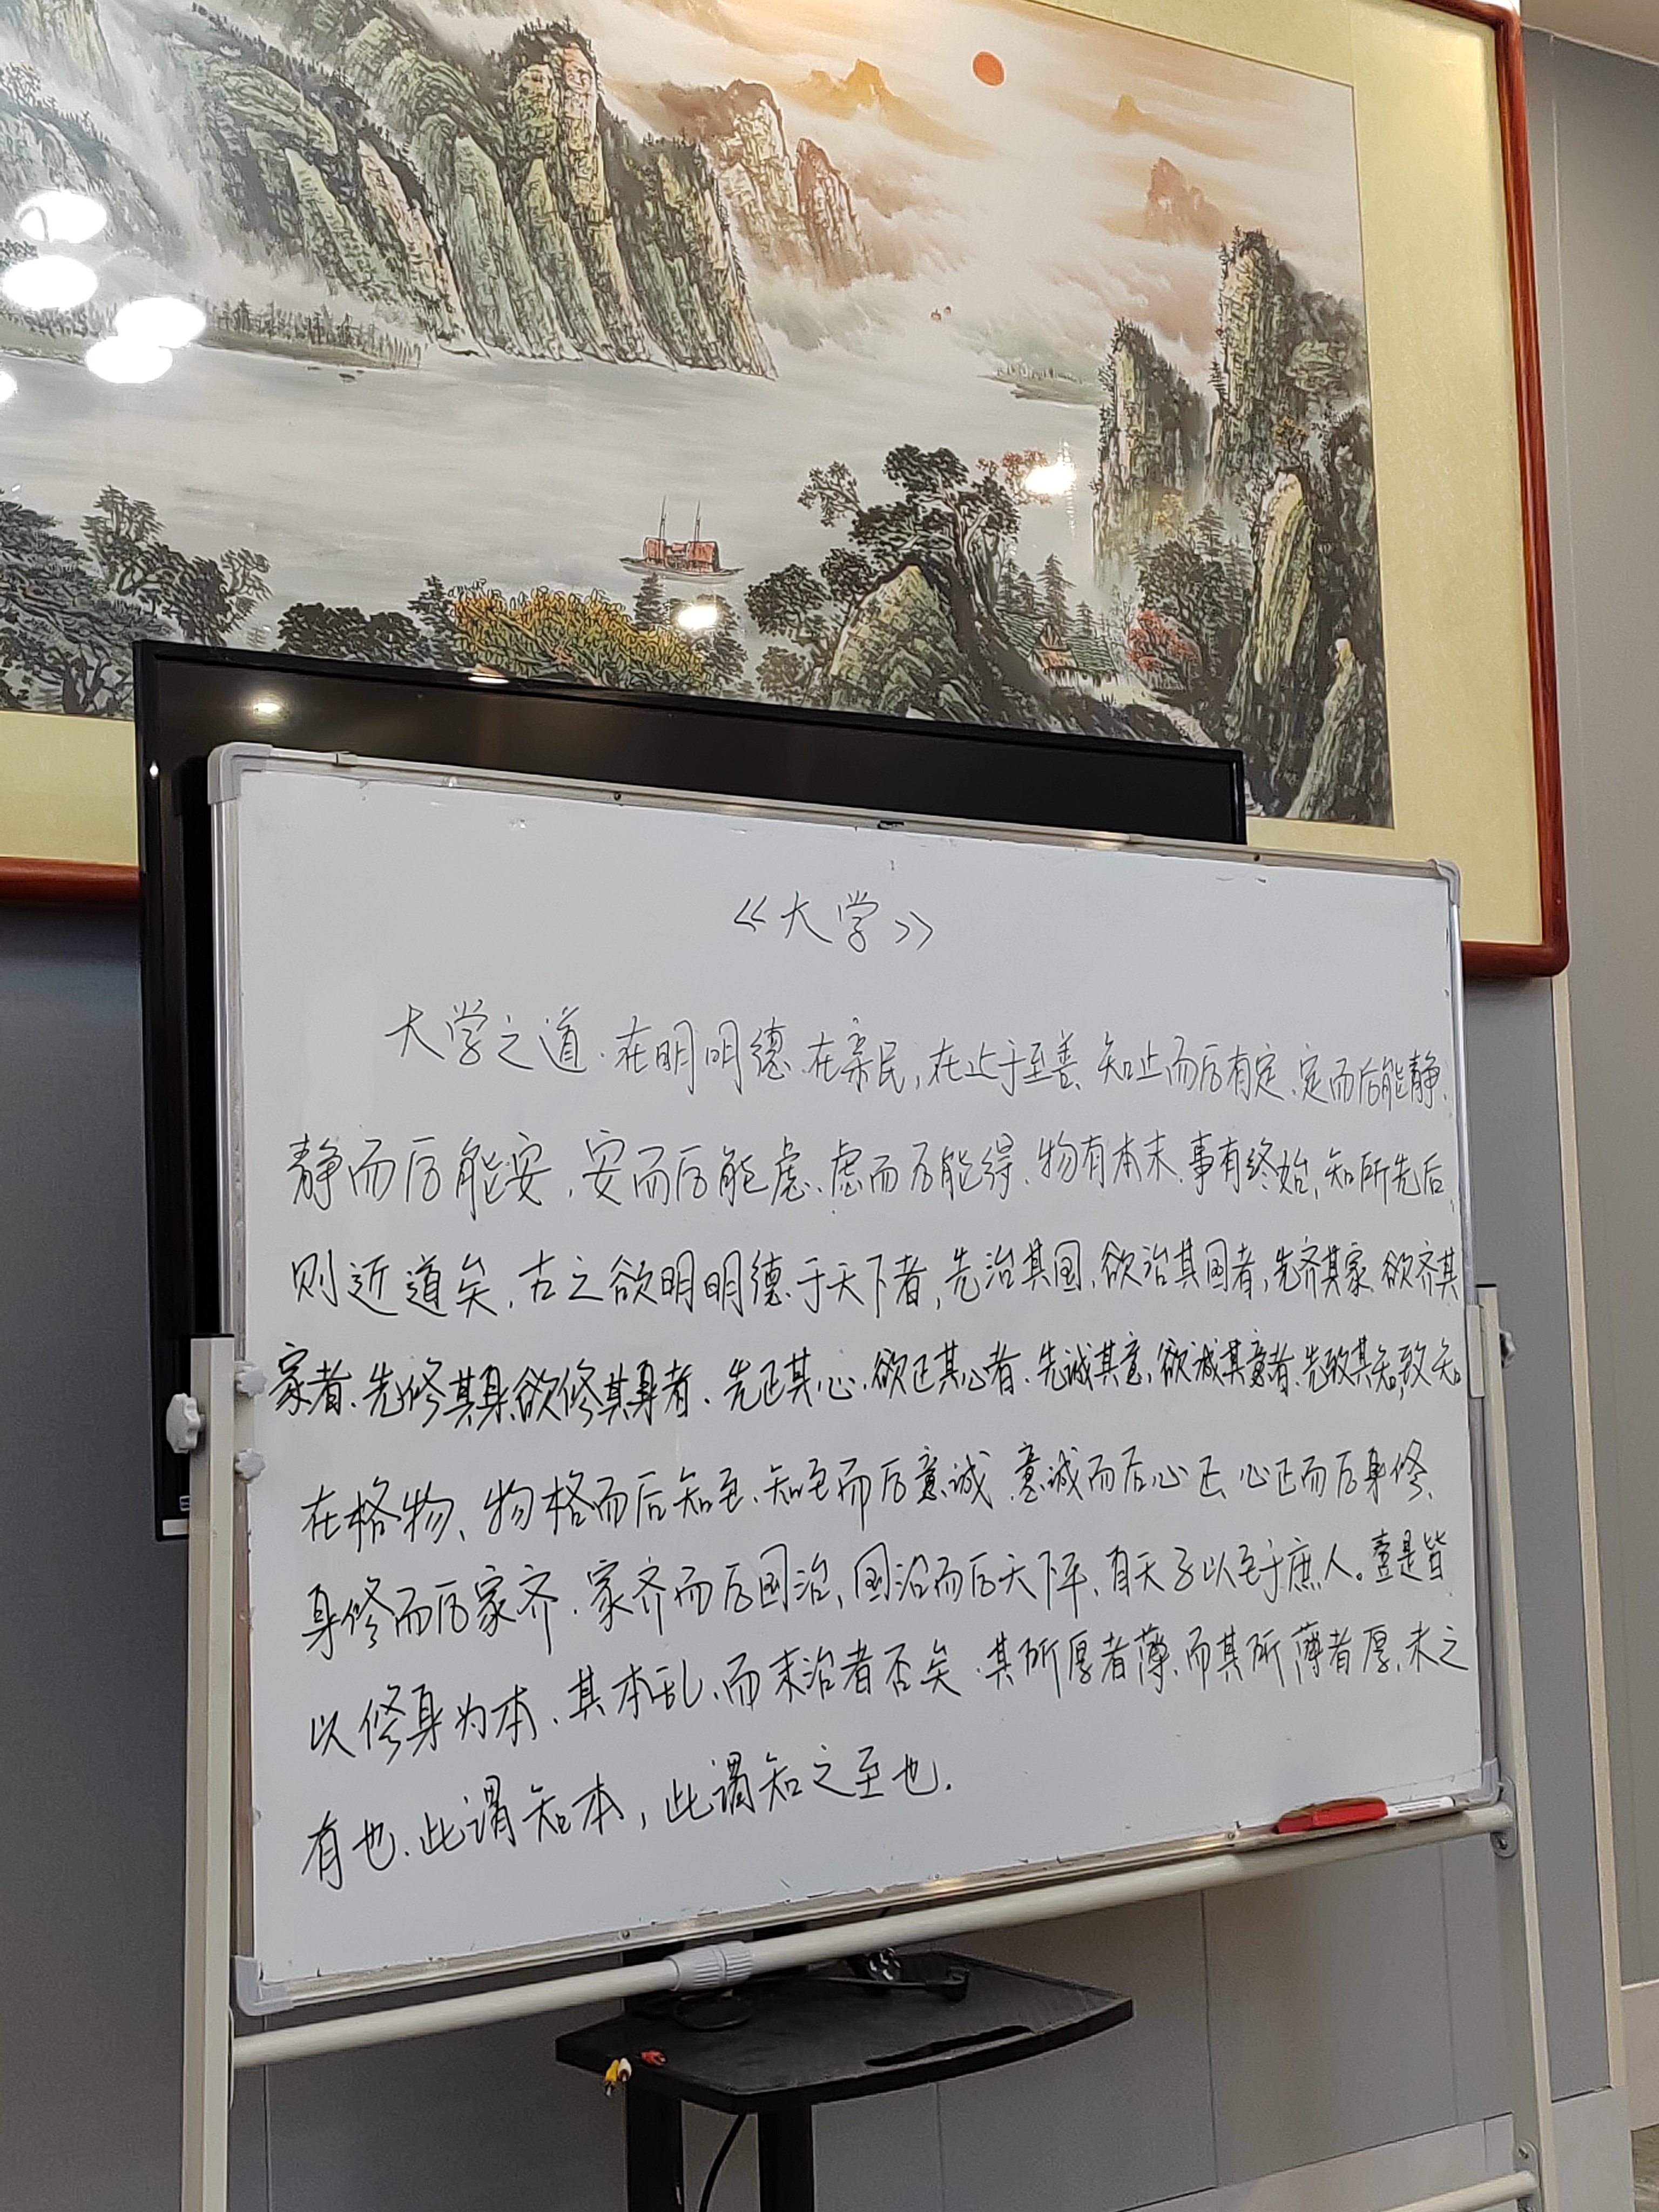 《大学》
大学之道、在明明德、在亲民，在止于至善、知止而后有定、定而后能静、
静而后能安、安而后能虑、虑而后能得、物有本末、事有终始、知所先后、
则近道矣、古之欲明明德于天下者，先治其国、欲治其国者，先齐其家、欲齐其
家者、先修其身、欲修其身者、先正其心、欲正其心者、先诚其意、欲诚其意者、先致其知、致知
在格物、物格而后知至、知至而后意诚、意诚而后心正、心正而后身修、
身修而后家齐、家齐而后国治、国治而后天下平、自天子以至于庶人。壹是皆
以修身为本、其本乱、而末治者否矣、其所厚者薄、而其所薄者厚、未之
有也、此谓知本，此谓知之至也.